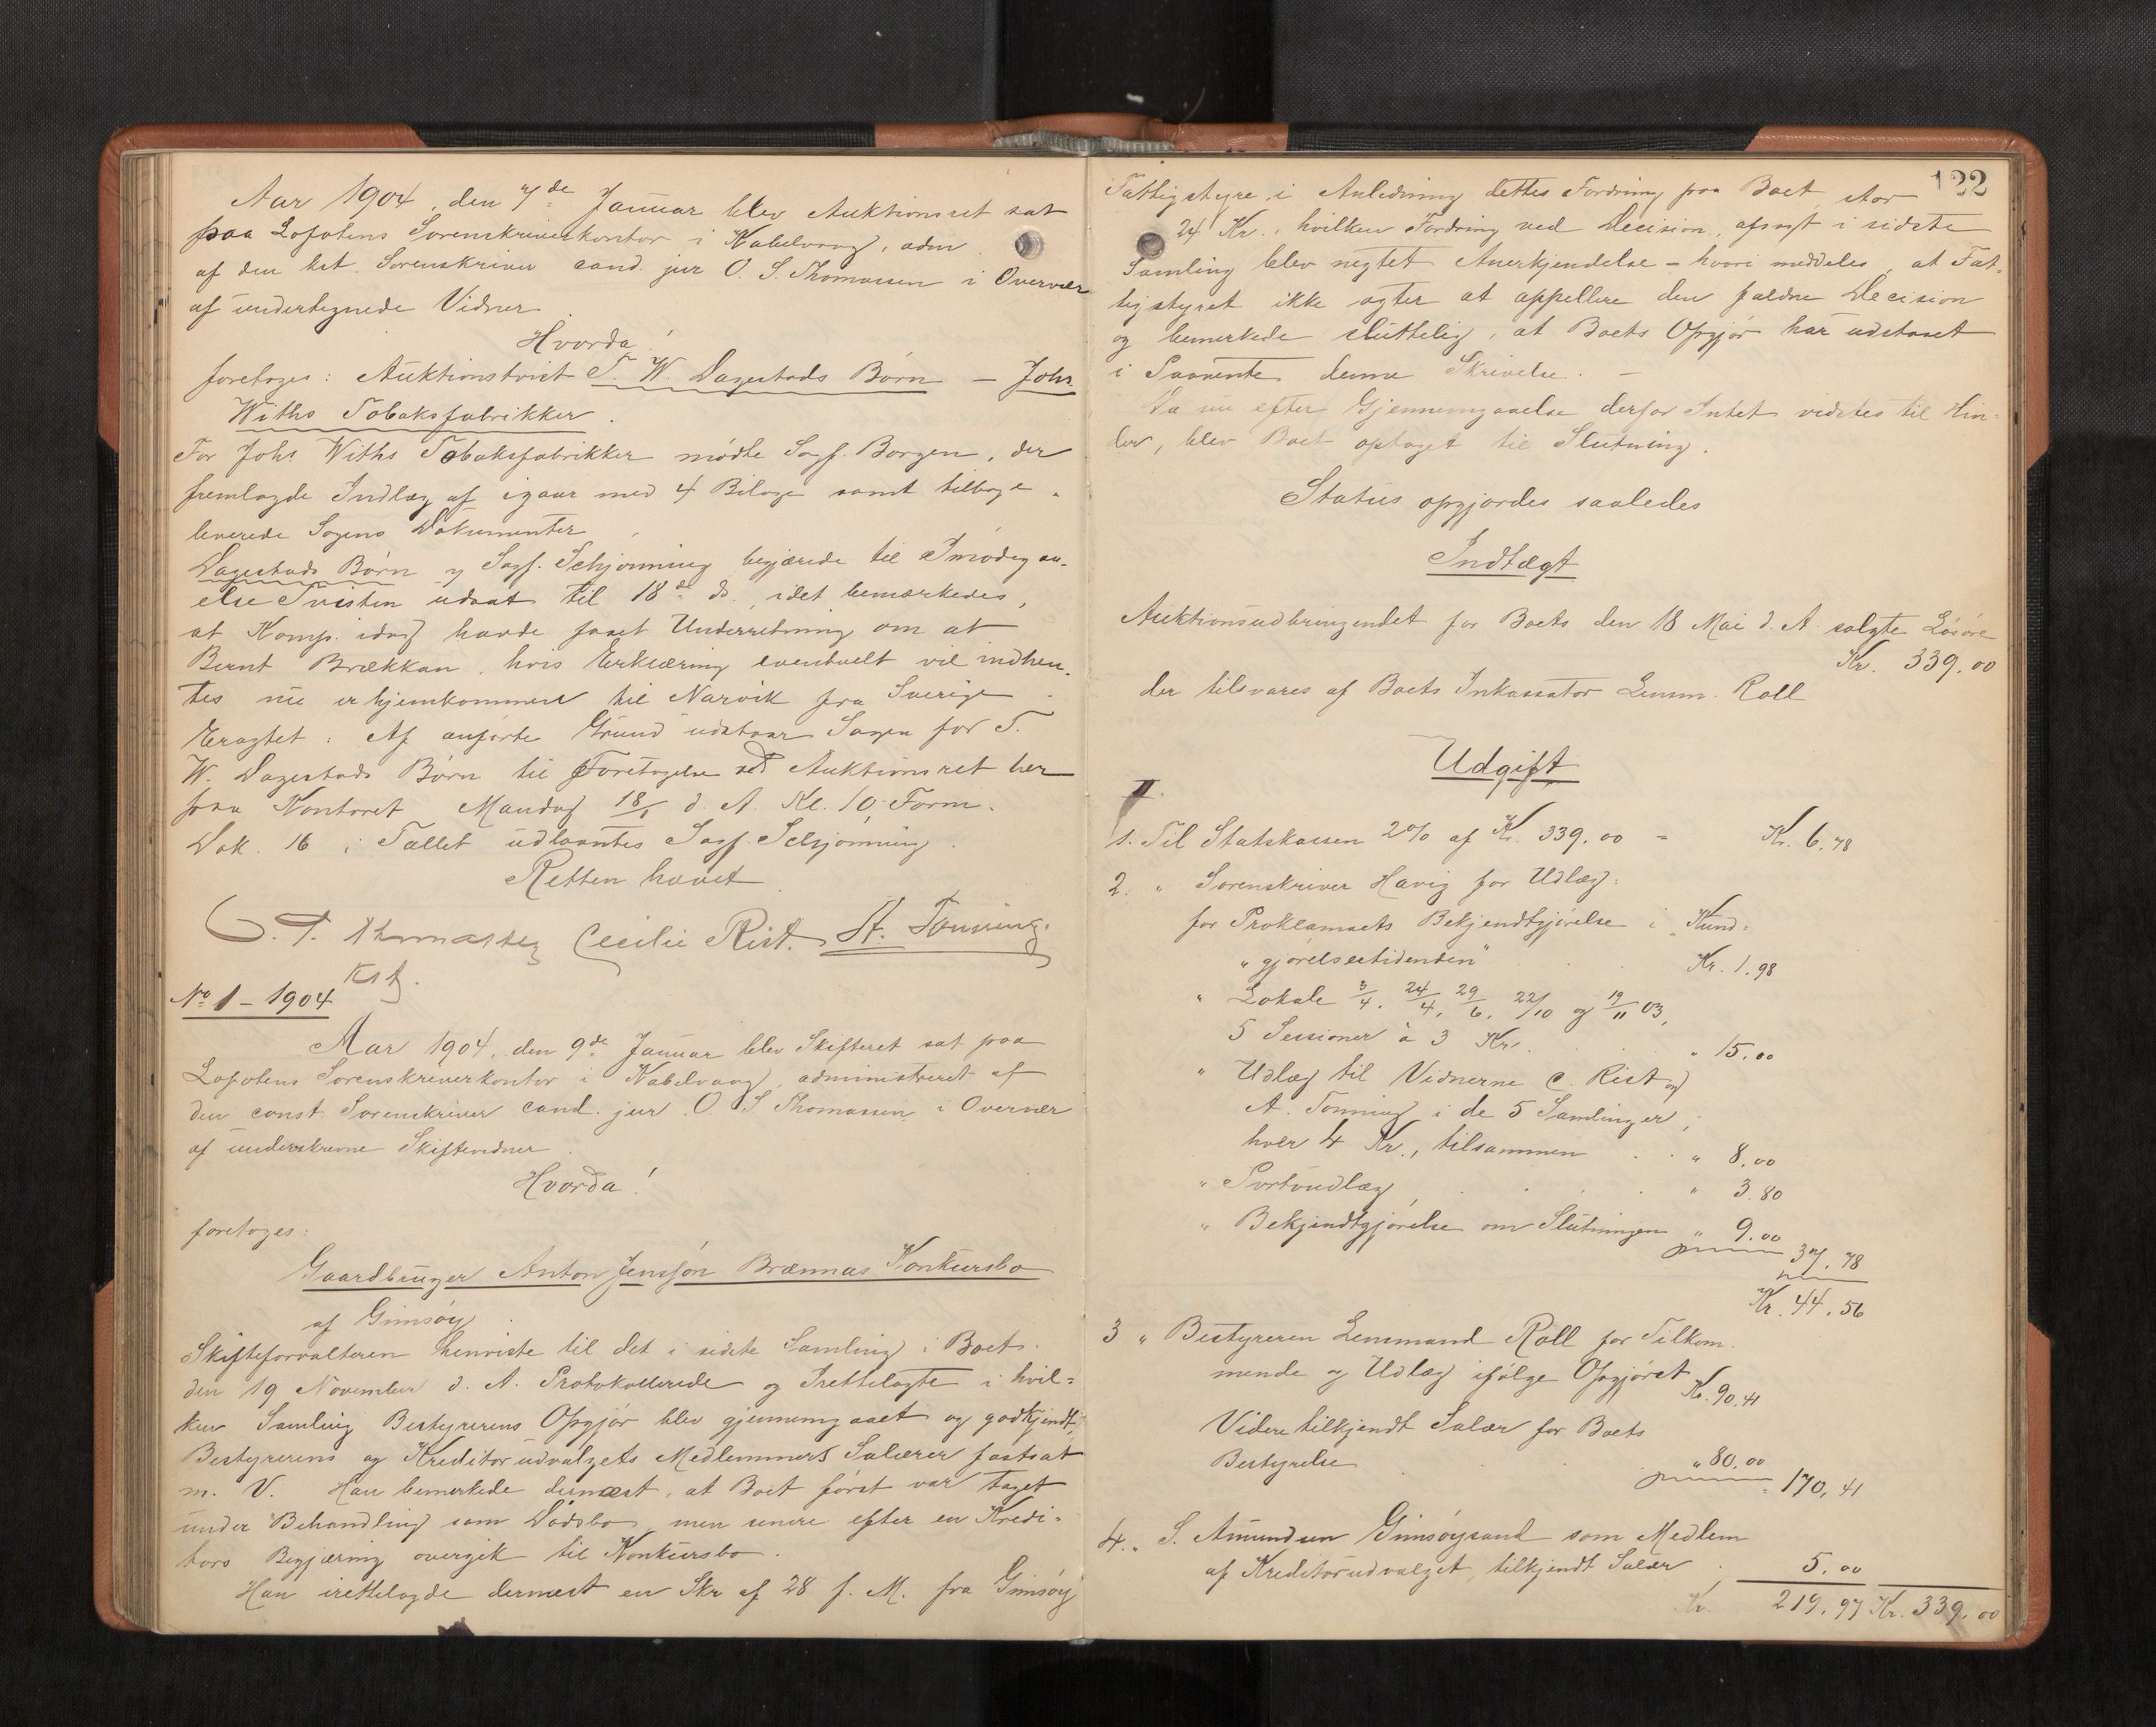 Aar 1904, den 7de Januar blev Auktionsret sat
paa Lofotens Sorenskriverkontor i Kabelvaag, adm
af den kst. Sorenskriver cand. jur O. S. Thomassen i Overvær
af undertegnede Vidner
Hvorda!
foretoges: Auktionstvist T. W. Dagestads Børn – Johs.
Withs Tobaksfabrikker.
For Johs Withs Tobaksfabrikker mødte Sagf. Borgen, der
fremlagde Indlæg af igaar med 4 Bilage samt tilbage-
leverede Sagens Dokumenter
Dagestads Børn v Sagf. Schjønning begjærede til Imødegaa-
else Tvisten udsat til 18de ds., idet bemærkedes,
at Komp. idag havde faaet Underretning om at
Bernt Brækkan, hvis Erklæring eventuelt vil indhen-
tes nu er hjemkommen til Narvik fra Sverige
Eragtet: Af anførte Grund udstaar Sagen for T.
W. Dagestads Børn til Foretagelse ved Auktionsret her
paa Kontoret Mandag 18/1 d. A. Kl. 10 Form.
Dok. 16 i Tallet udlaantes Sagf. Schjønning.
Retten hævet
O. S. Thomassen Cecilie Rist. A. Tønning.
Kst.
No 1 – 1904
Aar 1904, den 9de Januar blev Skifteret sat paa
Lofotens Sorenskriverkontor i Kabelvaag, administreret af
den const Sorenskriver cand. jur. O S Thomassen i Overvær
af underskrevne Skiftevidner
Hvorda!
foretoges:
Gaardbruger Anton Jenssøn Brænnas Konkursbo
af Gimsøy.
Skifteforvalteren henviste til det i sidste Samling i Boet
den 19 November d. A. Protokollerede og Irettelagte i hvil-
ken Samling Bestyrerens Opgjør blev gjennemgaaet og godkjendt,
Bestyrerens og Kreditorudvalgets Medlemmers Salærer fastsat
m. V. Han bemerkede dernæst, at Boet først var taget
under Behandling som Dødsbo, men senere efter en Kredi-
tors Begjæring overgik til Konkursbo.
Han irettelagde dernæst en Skr af 28 f. M. fra Gimsøy
122
Fattigstyre i Anledning dettes Fordring paa Boet stor
24 Kr., hvilken Fordring ved Decision, afsagt i sidste
Samling blev negtet Anerkjendelse – hvori meddeles, at Fat-
tigstyret ikke agter at appellere den faldne Decision
og bemerkede sluttelig, at Boets Opgjør har udstaaet
i Paavente denne Skrivelse. –
Da nu efter Gjennemgaaelse derfor Intet vidstes til Hin-
der, blev Boet optaget til Slutning.
Status opgjordes saaledes
Indtægt
Auktionsudbringendet for Boets den 18 Mai d. A. solgte Løsøre
Kr. 339.00
der tilsvares af Boets Inkassator Lensm. Roll
Udgift
1. Til Statskassen 2% af Kr. 339.00 = Kr. 6.78
2. " Sorenskriver Havig for Udlæg:
for Proklamaets Bekjendtgjørelse i "Kund-
" gjørelsestidenden" Kr. 1.98
" Lokale 3/4, 24/4, 29/6, 22/10 og 19/11 03,
5 Sessioner à 3 Kr. " 15.00
" Udlæg til Vidnerne C. Rist og
A. Tønning i de 5 Samlinger,
hver 4 Kr., tilsammen " 8.00
" Portoudlæg " 3.80
" Bekjendtgjørelse om Slutningen " 9.00
37.78
Kr. 44.56
3 " Bestyreren Lensmand Roll for Tilkom-
mende og Udlæg ifølge Opgjøret Kr. 90.41
Videre tilkjendt Salær for Boets
Bestyrelse " 80.00
170.41
4. " S. Amundsen Gimsøysand som Medlem
af Kreditorudvalget, tilkjendt Salær 5.00
Kr. 219.97 Kr. 339.00